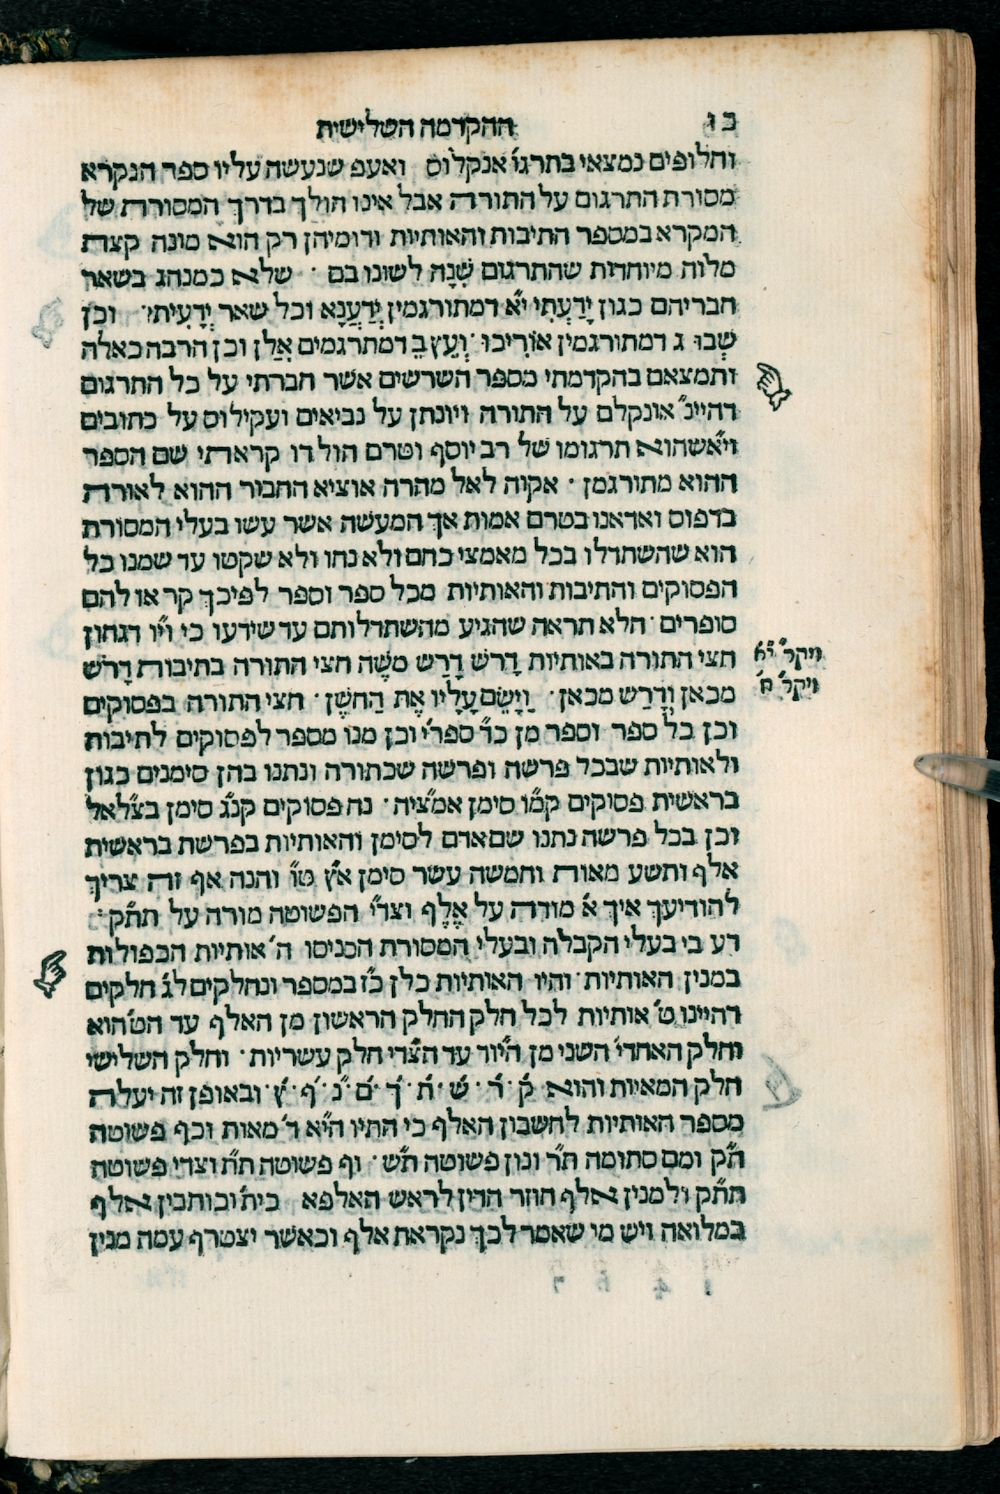 כו
ההקדמה השלישית
וחלופים נמצאי בתרגו׳ אנקלוס ואעפ שנעשה עליו ספר הנקרא
מסורת התרגום על התורה אבל אינו הולך בדרך המסורת של
המקרא במספר התיבות והאותיות ודומיהן רק הוא מונה קצת
מלות מיוחדות שהתרגום שִׁנָה לשונו בם · שלא כמנהג בשאר
חבריהם כגון יָדַעְתִּי י״א דמתורגמין יְדַעֲנָא וכל שאר יְדָעִית׳ · וכן
שְׁבוּ ג דמתורגמין אוֹרִיכוּ · וְעֵץ בֵּ דמתרגמים אִלַן וכן הרבה כאלה
ותמצאם בהקדמתי מספר השרשים אשר חברתי על כל התרגום
דהיינ׳ אונקלם על התורה ויונתן על נביאים ועקילוס על כתובים
וי״א שהוא תרגומו של רב יוסף וטרם הולדו קראתי שם הספר
ההוא מתורגמן · אקוה לאל מהרה אוציא החבור ההוא לאורה
בדפוס ואדאנו בטרם אמות אך המעשה אשר עשו בעלי המסורת
הוא שהשתדלו בכל מאמצי כחם ולא נחו ולא שקטו עד שמנו כל
הפסוקים והתיבות והאותיות מכל ספר וספר לפיכך קראו להם
סופרים · הלא תראה שהגיע מהשתדלותם עד שידעו כי וי״ו דגחון
חצי התורה באותיות דָרשׁ דָרַשׁ משֶׁה חצי התורה בתיבות דָרֹשׁ
מכאן וְדָרַשׁ מכאן · וַיָּשֶׂם עָלָיו אֶת הַחשֶׁן · חצי התורה בפסוקים
וכן כל ספר וספר מן כ״ד ספרי׳ וכן מנו מספר לפסוקים לתיבות
ולאותיות שבכל פרשה ופרשה שבתורה ונתנו בהן סימנים כגון
בראשית פסוקים קמ״ו סימן אמ״ציה · נח פסוקים קנ״ג סימן בצ״לאל
וכן בכל פרשה נתנו שם אדם לסימן והאותיות בפרשת בראשית
אלף ותשע מאות וחמשה עשר סימן א״ץ ט״ו והנה אף זה צריך
להודיעך איך א׳ מורה על אֶלֶף וצד״י הפשוטה מורה על תת״ק :
דע כי בעלי הקבלה ובעלי המסורת הכניסו ה׳ אותיות הכפולות
במנין האותיות · והיו האותיות כלן כ״ז במספר ונחלקים לג׳ חלקים
דהיינו ט׳ אותיות לכל חלק החלק הראשון מן האלף עד הט׳ הוא
וחלק האחדי׳ השני מן היוד עד הצדי חלק עשריות · וחלק השלישי
חלק המאיות והוא ק׳ · ר׳ · ש׳ · ת׳ · ך׳ · ם׳ · ן׳ · ף׳ · ץ׳ · ובאופן זה יעלה
מספר האותיות לחשבון האלף כי התיו היא ד׳ מאות וכף פשוטה
ת״ק ומם סתומה ת״ר ונון פשוטה ת״ש · וף פשוטה ת״ת וצדי פשוטה
תת״ק ולמנין אלף חוזר הדין לראש האלפא בית׳ וכותבין אלף
במלואה ויש מי שאמר לכך נקראת אלף וכאשר יצטרף עמה מנין
ויקר׳ י״א
ויקר׳ ח׳